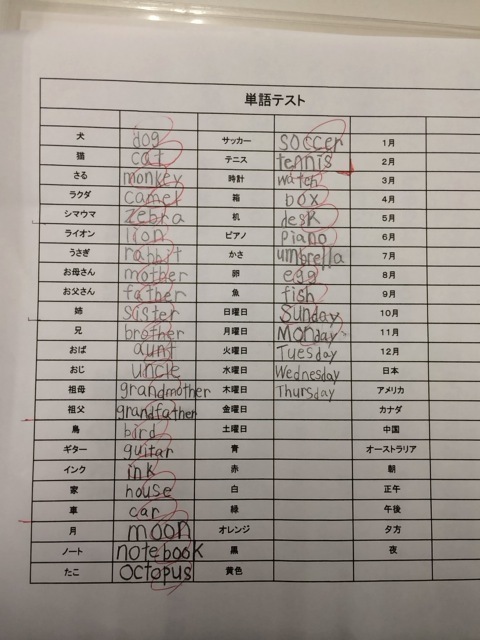 単語テスト
犬 dog サッカー soccer 1月
猫 cat テニス tennis 2月
さる monkey 時計 watch 3月
ラクダ camel 箱 box 4月
シマウマ zebra 机 desk 5月
ライオン lion ピアノ piano 6月
うさぎ rabbit かさ umbrella 7月
お母さん mother 卵 egg 8月
お父さん father 魚 fish 9月
姉 sister 日曜日 Sunday 10月
兄 brother 月曜日 Monday 11月
おば aunt 火曜日 Tuesday 12月
おじ uncle 水曜日 Wednesday 日本
祖母 grandmother 木曜日 Thursday アメリカ
祖父 grandfather 金曜日 カナダ
鳥 bird 土曜日 中国
ギター guitar 青 オーストラリア
インク ink 赤 朝
家 house 白 正午
車 car 緑 午後
月 moon オレンジ 夕方
ノート notebook 黒 夜
たこ octopus 黄色